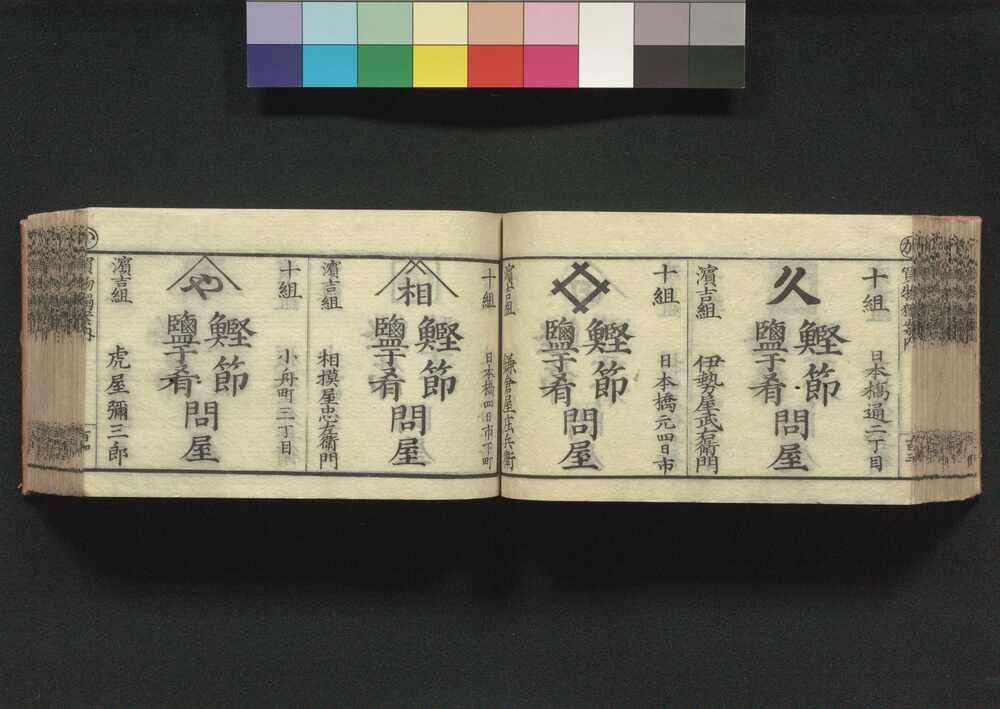 十組
日本橋通二丁目
久
鰹節
鹽干肴
問屋
濵吉組
伊勢屋武右衛門
十組
日本橋元四日市
鰹節
鹽干肴
問屋
濵吉組
鎌倉屋庄兵衛
十組
日本橋四日市下町
相
鰹節
鹽干肴
問屋
濵吉組
相摸屋忠左衛門
十組
小舟町三丁目
や
鰹節
鹽干肴
問屋
濵吉組
虎屋彌三郎